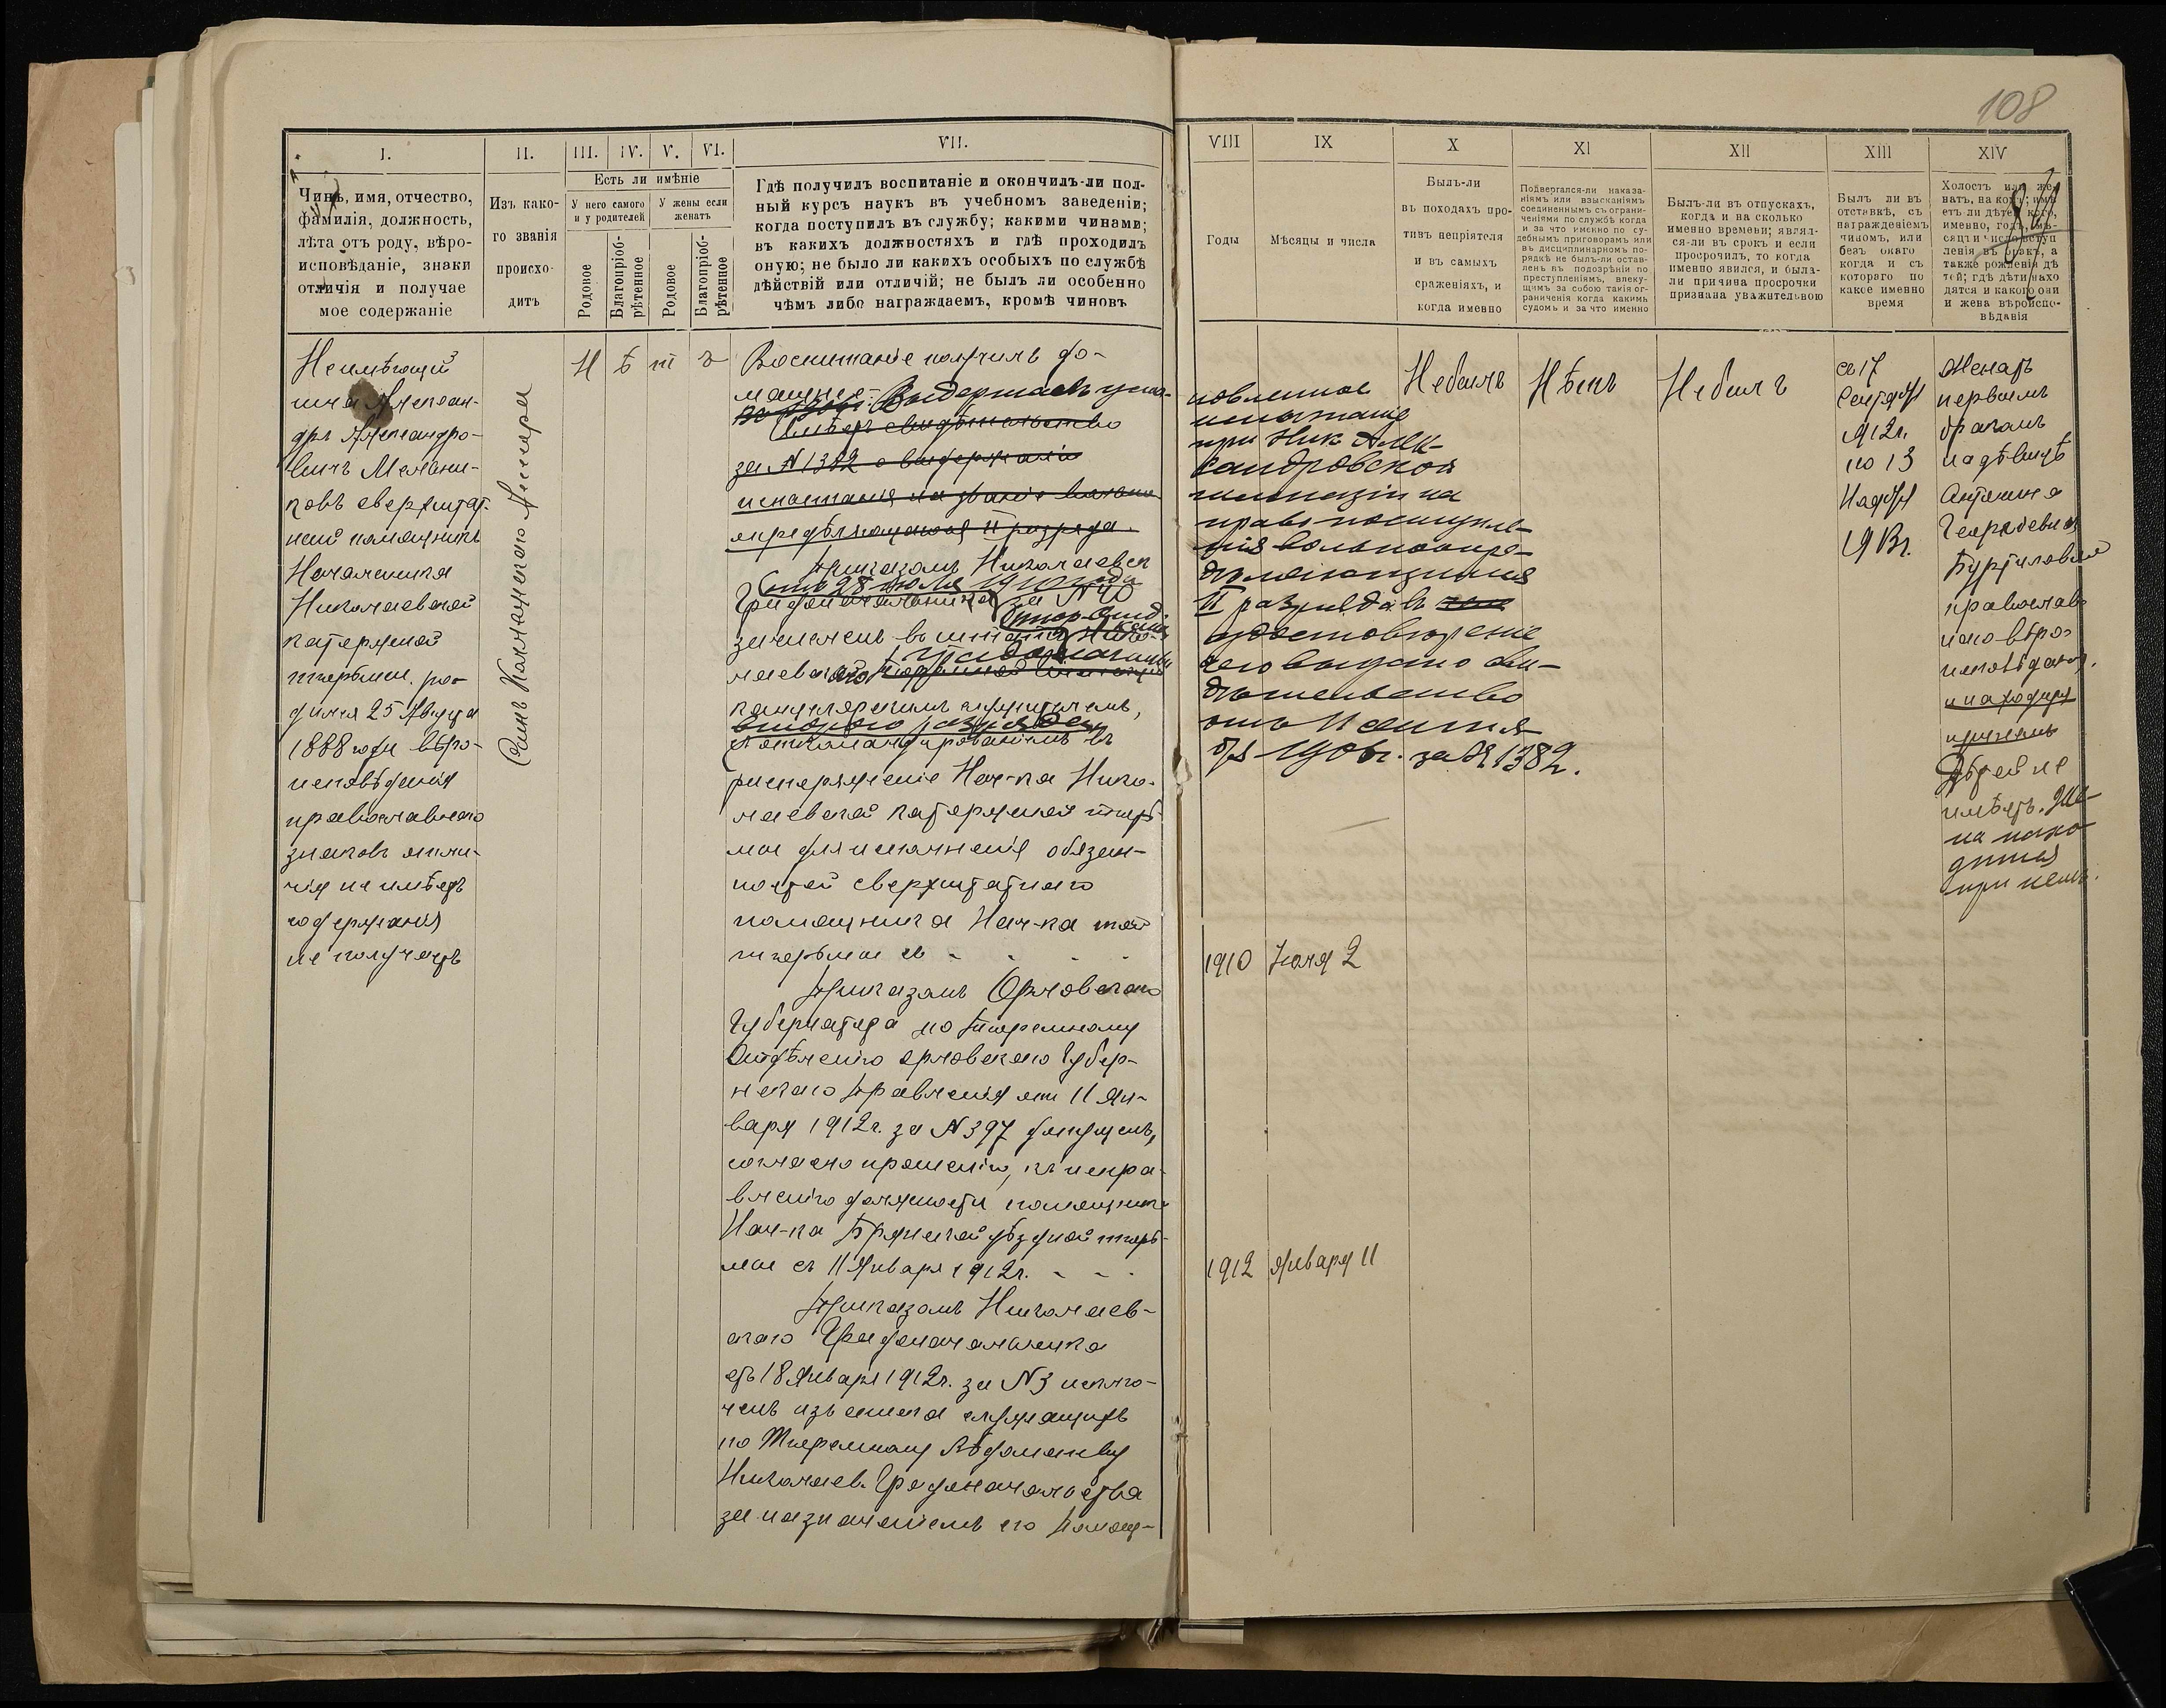 108
I.
Чинъ, имя, отчество,
фамилія, должность,
лѣта отъ роду, вѣро-
исповѣданіе, знаки
отличія и получае
мое содержаніе
II.
Изъ како-
го званія
происхо-
дитъ
III. IV. V. VI.
Есть ли имѣніе
У него самого
и у родителей
У жены если
женатъ
Родовое
Благопріоб-
рѣтенное
Родовое
Благопріоб-
рѣтенное
VII.
Гдѣ получилъ воспитаніе и окончилъ-ли пол-
ный курсъ наукъ въ учебномъ заведеніи;
когда поступилъ въ службу; какими чинами;
въ какихъ должностяхъ и гдѣ проходилъ
оную; не было ли какихъ особыхъ по службѣ
дѣйствій или отличій; не былъ ли особенно
чѣмъ либо награждаемъ, кромѣ чиновъ
VIII
Годы
IX
Мѣсяцы и числа
X
Былъ-ли
въ походахъ про-
тивъ непріятеля
и въ самыхъ
сраженіяхъ, и
когда именно
XI
Подвергался-ли наказа-
ніямъ или взысканіямъ
соединеннымъ съ ограни-
ченіями по службѣ когда
и за что именно по су-
дебнымъ приговорамъ или
въ дисциплинарномъ по-
рядкѣ не былъ-ли остав-
ленъ въ подозрѣніи по
преступленіямъ, влеку-
щимъ за собою такія ог-
раниченія когда какимъ
судомъ и за что именно
XII
Былъ-ли въ отпускахъ,
когда и на сколько
именно времени; являл-
ся-ли въ срокъ и если
просрочилъ, то когда
именно явился, и была-
ли причина просрочки
признана уважительною
XIII
Былъ ли въ
отставкѣ, съ
награжденіемъ
чиномъ, или
безъ онаго
когда и съ
котораго по
какое именно
время
XIV
Холостъ или же-
натъ, на комъ; имѣ
етъ ли дѣтей кого,
именно, годъ, мѣ-
сяцъ и число вступ
ленія въ бракъ, а
также рожденія дѣ
тей; гдѣ дѣти нахо
дятся и какого они
и жена вѣроиспо-
вѣданія
Неимѣющій
чина Алексан-
дръ Александро-
вичъ Мелани-
ковъ сверхштат-
ный помощникъ
Начальника
Николаевской
каторжной
тюрьмы, ро-
дился 25 Августа
1888 года вѣро-
исповѣданія
православнаго
знаковъ отли-
чія не имѣетъ
содержанія
не получаетъ
Н ѣ т ъ
Воспитаніе получилъ до-
машнее. Выдержалъ уста-
Имѣетъ свидѣтельство
за N 1382 о выдержаніи
испытанія на званіе вольно
опредѣляющагося II разряда.
Приказомъ Николаевск
отъ 28 июля 1910 года
Градоначальника за N 40
зачисленъ въ штатъ Нико-
Градоначальн
лаевской
канцелярскимъ служителемъ,
второго разряда
съ откомандированіемъ въ
распоряженіе Нач-ка Нико-
лаевской каторжной тюрь
мы для исполненія обязан-
ностей сверхштатнаго
помощника Нач-ка той
тюрьмы съ - - - -
Приказомъ Орловскаго
Губернатора по Тюремному
Отдѣленію Орловскаго Губер-
нскаго Правленія отъ 11 Ян-
варя 1912г. за N 397 допущенъ,
согласно прошенію, къ испра-
вленію должности помощника
Нач-ка Брянской уѣздной тюрь-
мы съ 11 Января 1912г. - - -
Приказомъ Николаев-
скаго Градоначальника
отъ 18 Января 1912г. за N 3 исклю-
ченъ изъ списка служащихъ
по Тюремному Вѣдомству
Николаев. Градоначальства
за назначеніемъ его помощ-
новленное
испытаніе
при Ник Алек-
сандровской
гимназіи на
право поступле-
нія вольноопре-
дѣляющимся
II разряда въ чемъ
удостовѣреніе
чего выдано сви-
дѣтельство
отъ 11 сентя-
бря 1906г. за N 1382.
1910 Іюля 2
1912 Января 11
Небылъ
Нѣтъ
Небылъ
съ 17
Сентября
1912г.
по 13
Ноября
1913г.
Женатъ
первымъ
бракомъ
на дѣвицѣ
Антонинѣ
Георгіевнѣ
православ-
наго вѣро-
исповѣданія.
Дѣтей не
имѣетъ. Же-
на нахо-
дится
при немъ.